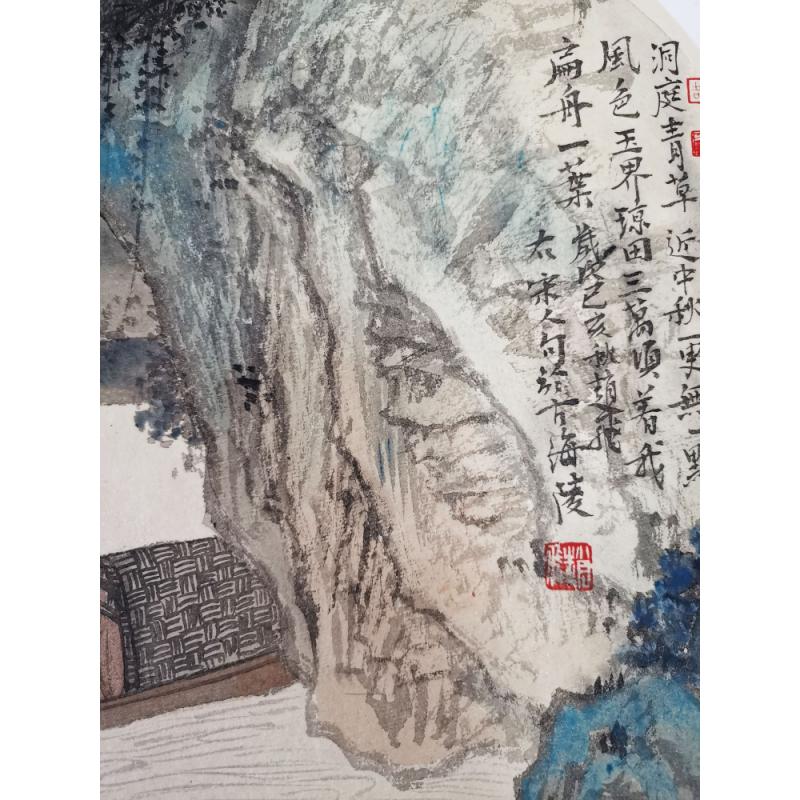 洞庭青草近中秋更無一點
風色玉界瓊田三萬頃著我
扁舟一葉歲次己亥秋趙飛
右宋人句於古海陵